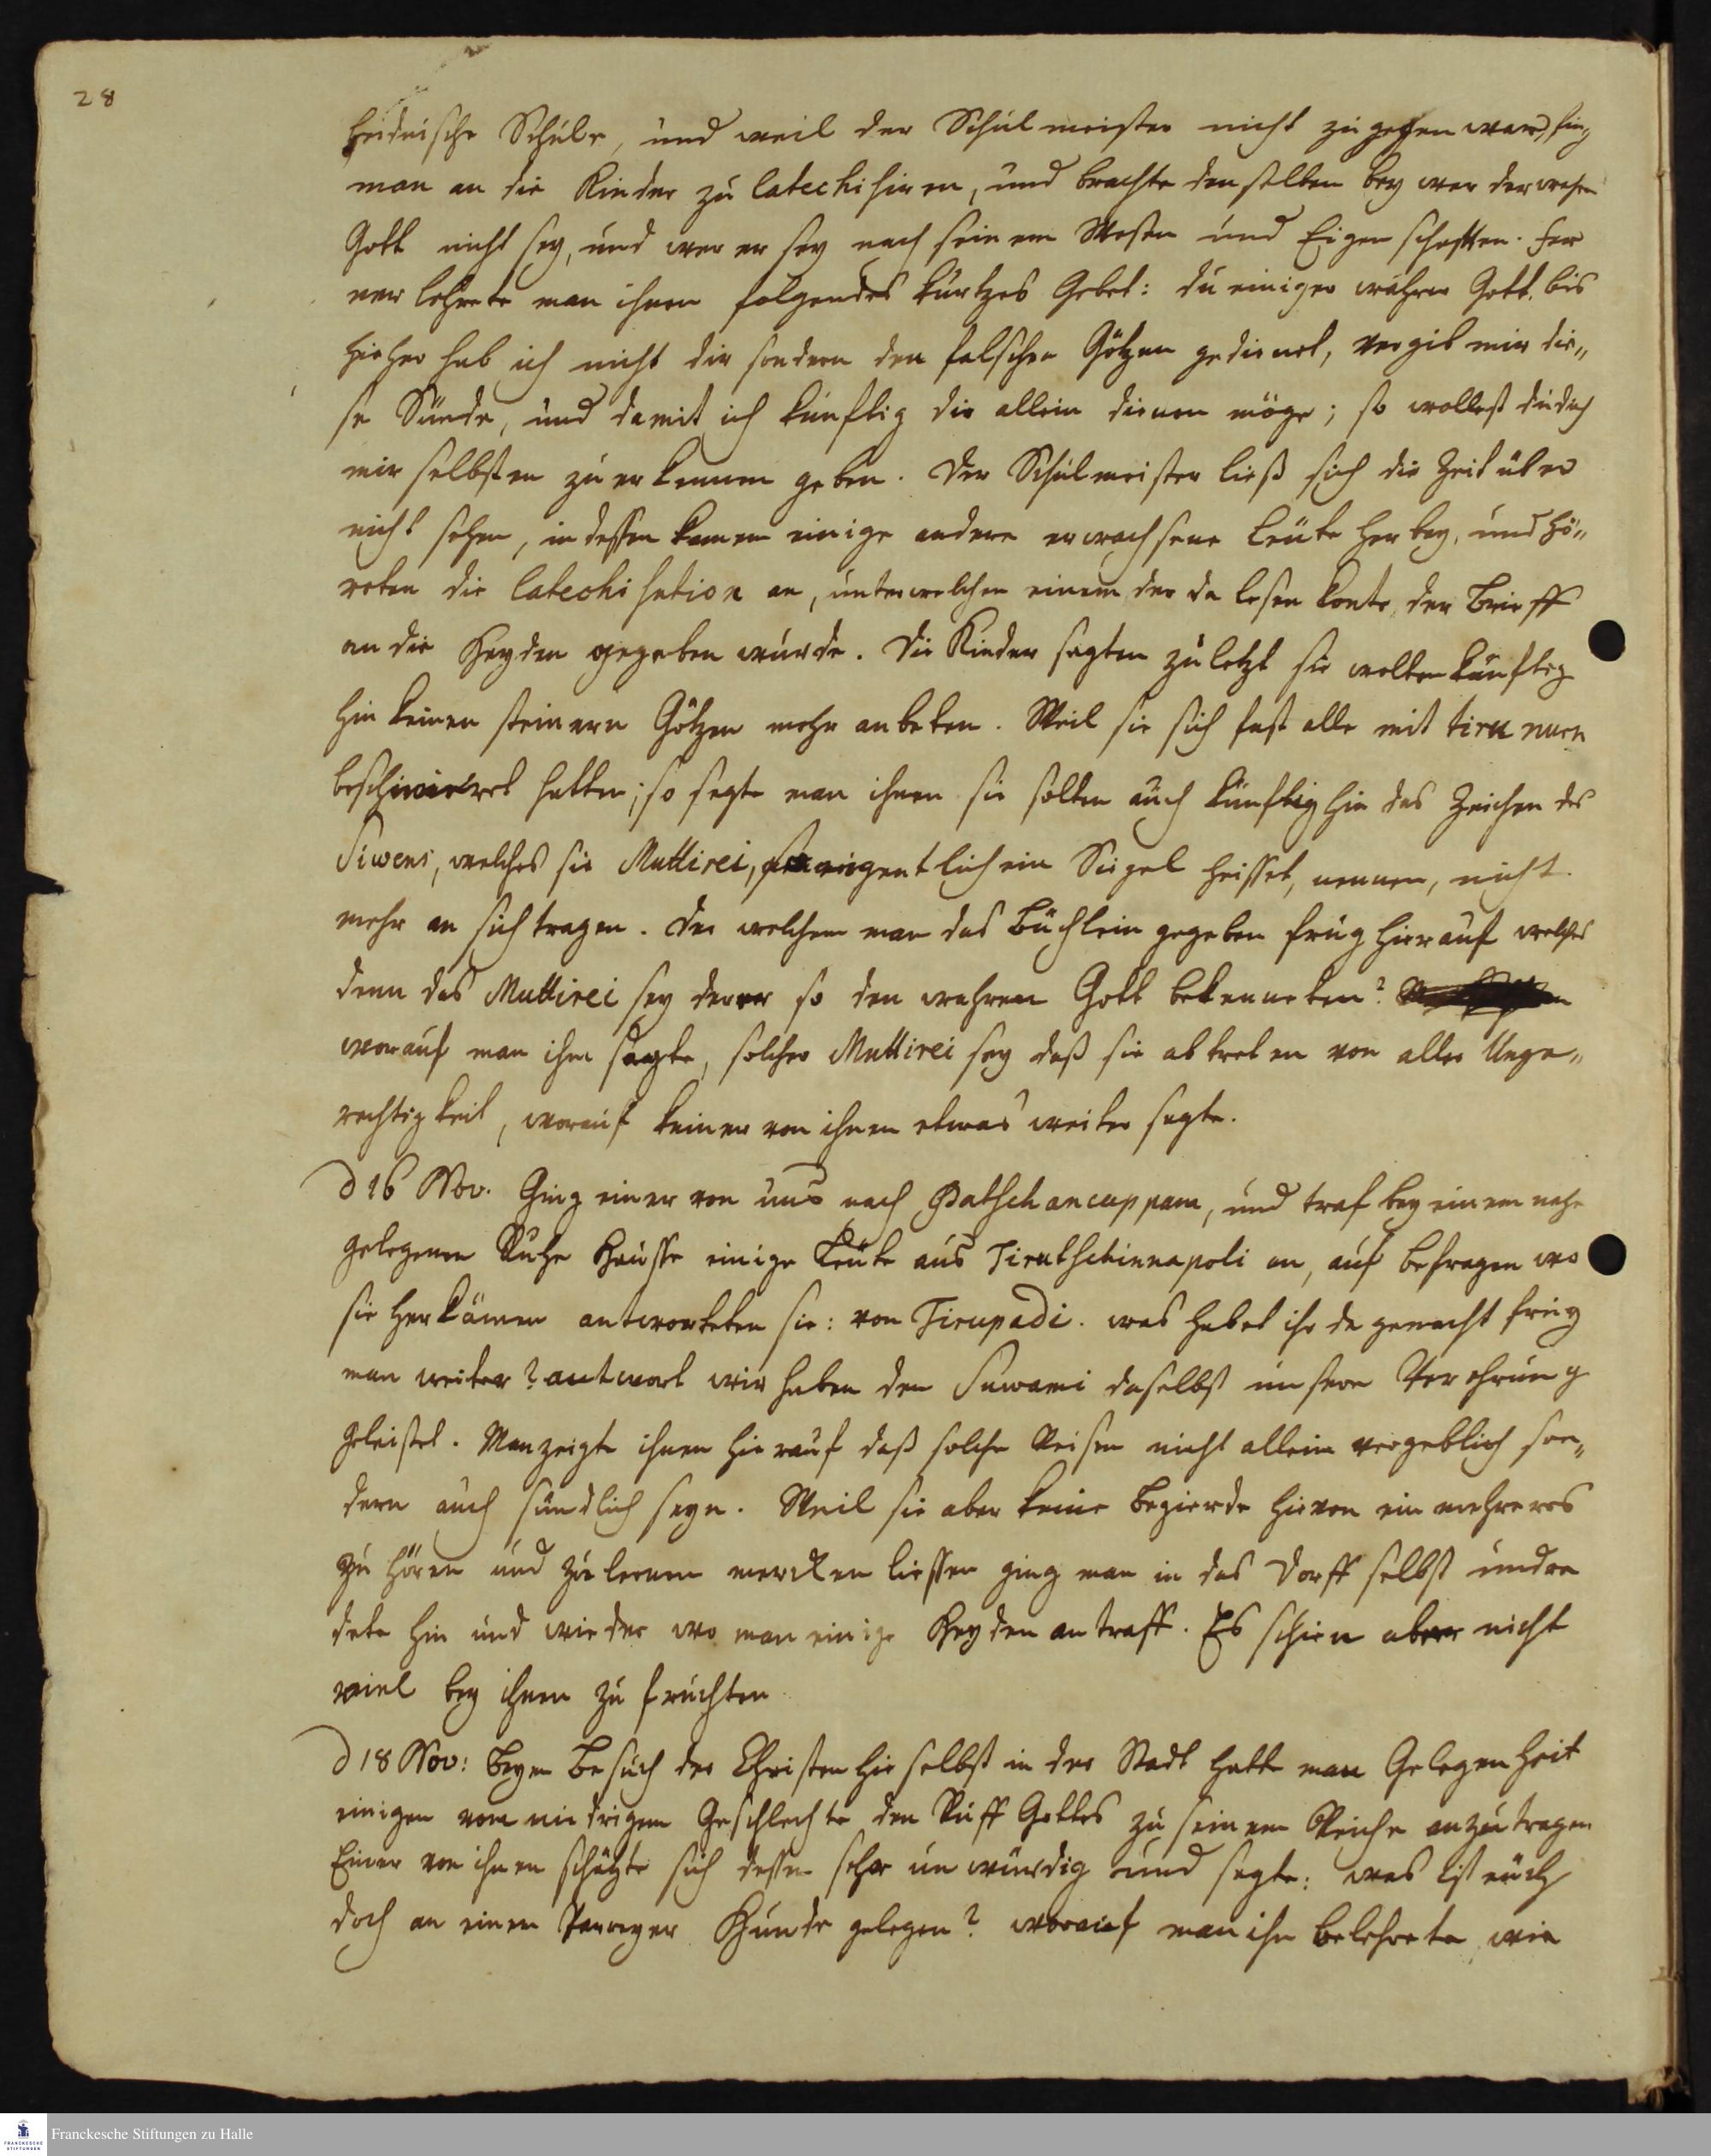 28
heidnische Schule, und weil der Schulmeister nicht zugegen war, fing
man an die Kinder zu catechisiren, und brachte denselben bey wer der wahre
Gott nicht sey, und wer er sey nach seinem Wesen und Eigenschafften. Fer
ner lehrete man ihnen folgendes kurtzes Gebet: du einiger wahrer Gott, bis
hieher hab ich nicht dir sondern den falschen Götzen gedienet, vergib mir die„
se Sünde, und damit ich künftig dir allein dienen möge; so wollest du dich
mir selbsten zu erkennen geben. Der Schulmeister ließ sich die Zeit über
nicht sehen, indessen kamen einige andere erwachsene Leute herbey, und hö„
reten die Catechisation an, unter welchen einem der da lesen konte, der Brieff
an die Heyden gegeben wurde. Die Kinder sagten zuletzt sie wolten künftig
hin keinen steinern Götzen mehr anbeten. Weil sie sich fast alle mit tirunuru
beschmieret hatten; so sagte man ihnen sie solten auch künftighin das Zeichen des
Siwens, welches sie Muttirei, so eigentlich ein Siegel heisset, nennen, nicht
mehr an sich tragen. Der welchem man das Büchlein gegeben frug hierauf welches
denn das Muttirei sey derer so den wahren Gott bekenneten?
worauf man ihm sagte, solcher Muttirei sey daß sie abtreten von aller Unge„
rechtigkeit, worauf keiner von ihnen etwas weiter sagte.
d 16 Nov. Ging einer von uns nach Patschancuppam, und traf bey einem nahe
gelegenen Ruhe Hausse einige Leute aus Tirutschinnapoli an, auf befragen wo
sie herkämen antworteten sie: von Tirupadi. was habet ihr da gemacht frug
man weiter? antwort wir haben dem Suwami daselbst unsere Verehrung
geleistet. Man zeigte ihnen hierauf daß solche Reisen nicht allein vergeblich son„
dern auch sündlich seyn. Weil sie aber keine Begierde hievon ein mehreres
zu hören und zu lernen mercken liessen ging man in das Dorff selbst und re
dete hin und wieder wo man einige Heyden antraff. Es schien aber nicht
viel bey ihnen zu fruchten
d 18 Nov: Beym Besuch der Christen hieselbst in der Stadt hatte man Gelegenheit
einigen vom niedrigen Geschlechte den Ruff Gottes zu seinem Reiche anzutragen
Einer von ihnen schätzte sich dessen sehr unwürdig und sagte: was ist euch
doch an einem Parreyer Hunde gelegen? worauf man ihn belehrete wie
Franckesche Stiftungen zu Halle